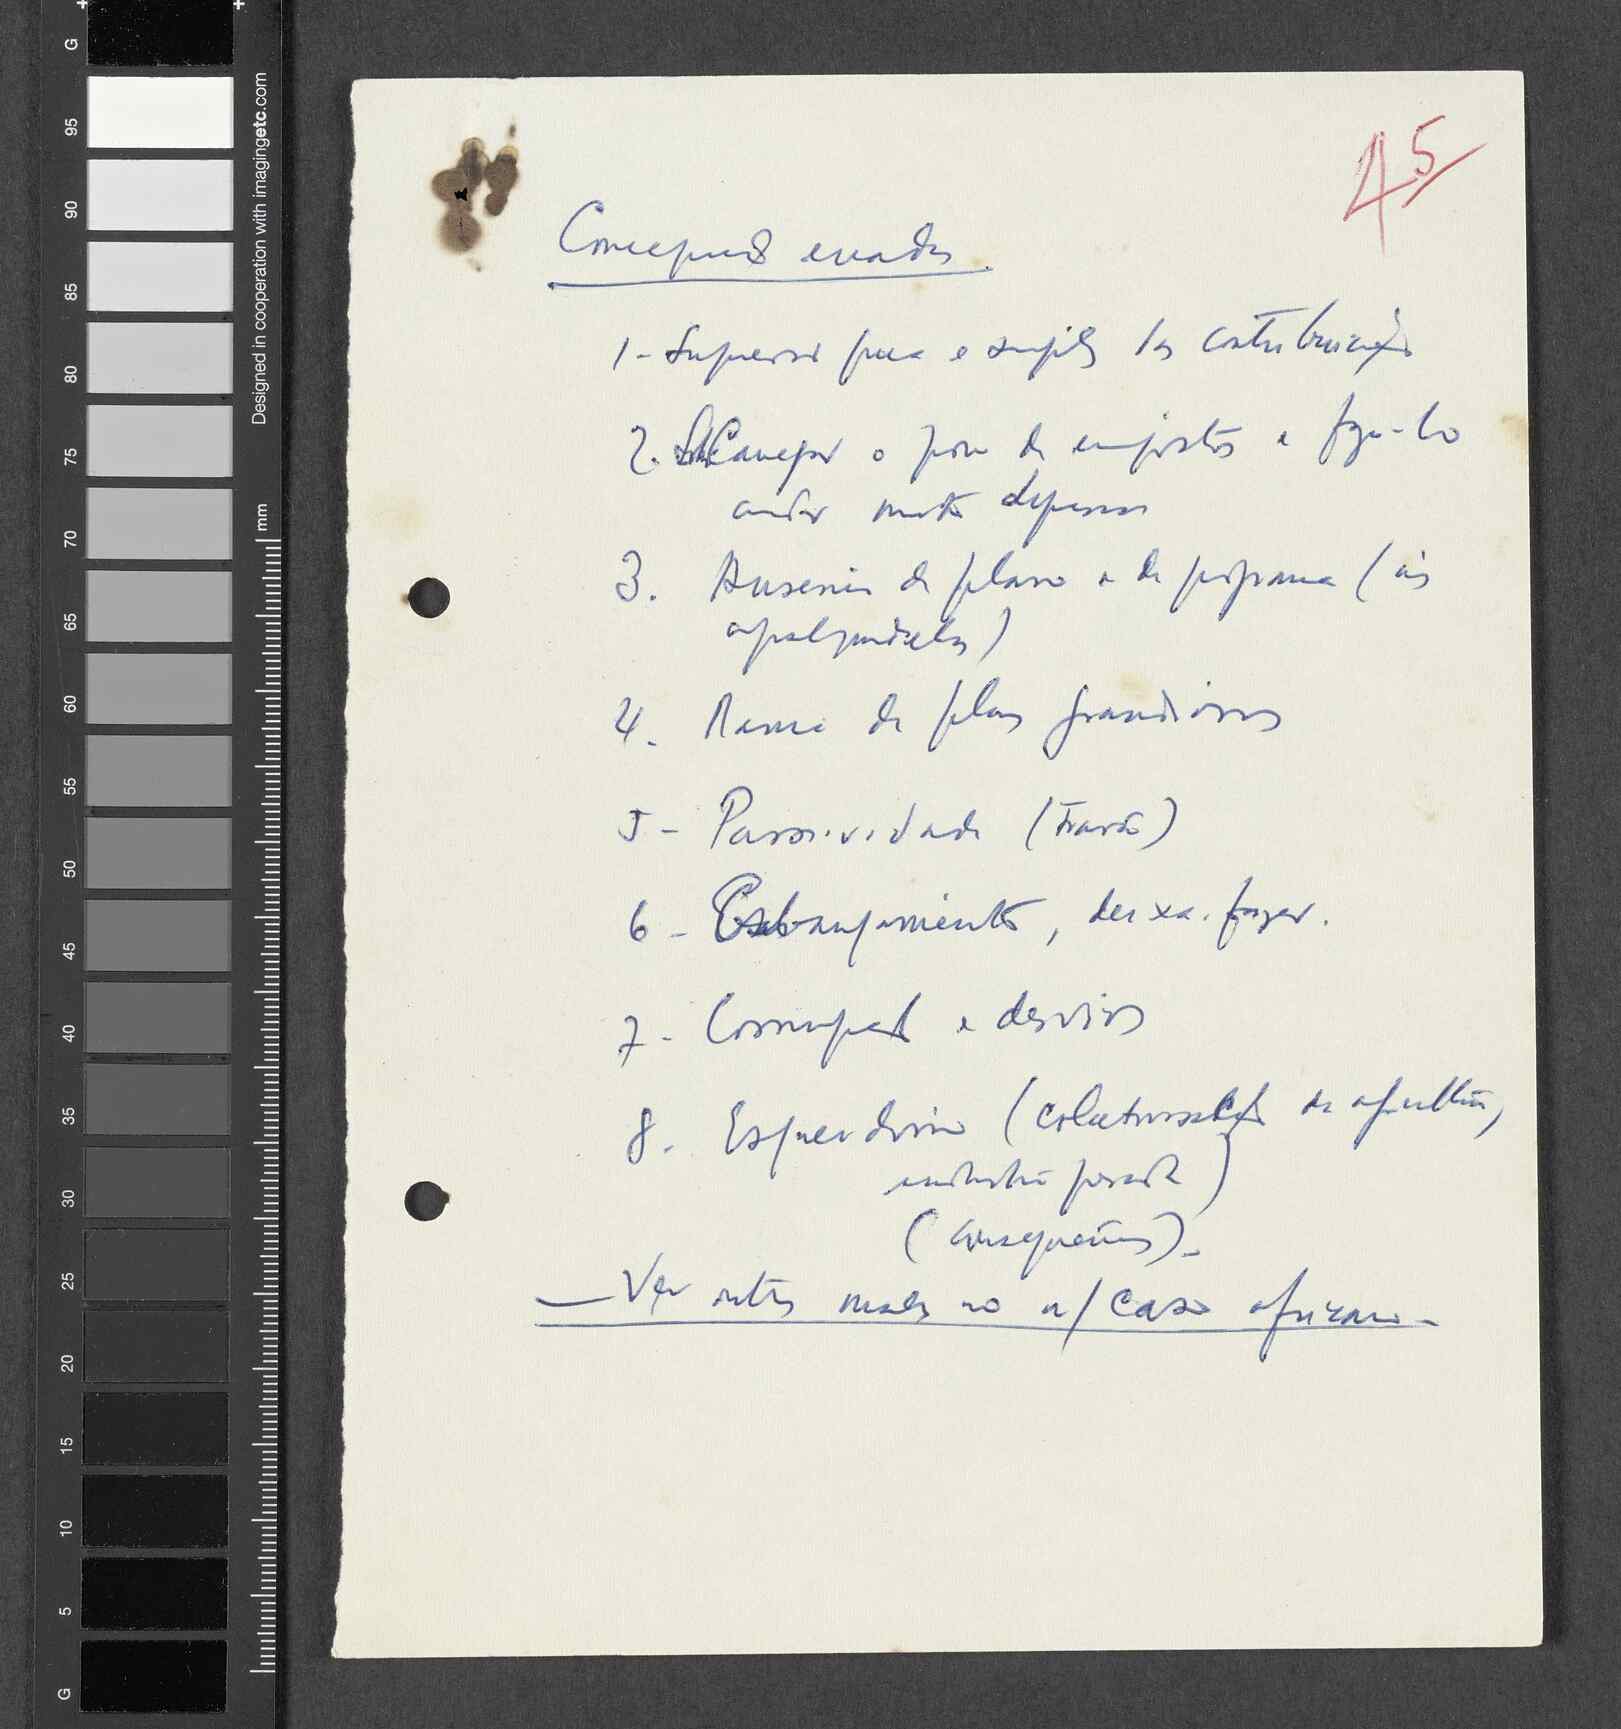 45
Concepções erradas.
1- Supressão pura e simples das contribuições
2. Carregar o povo de impostos e fazê-lo
andar muito depressa
3. Ausência de plano e de programa (às
apalpadelas)
4. Mania de planos grandiosos
5- Passividade (travão)
6- Esbanjamento, deixa-fazer.
7- Corrupção e desvios
8. Esquerdismo (colectivização da agricultura,
indústria pesada)
(consequências).
— Ver outros males no n/ caso africano.
G
95
90
85
80
75
70
65
60
55
50
45
40
35
30
25
20
15
10
5
G
Designed in cooperation with imagingetc.com
mm